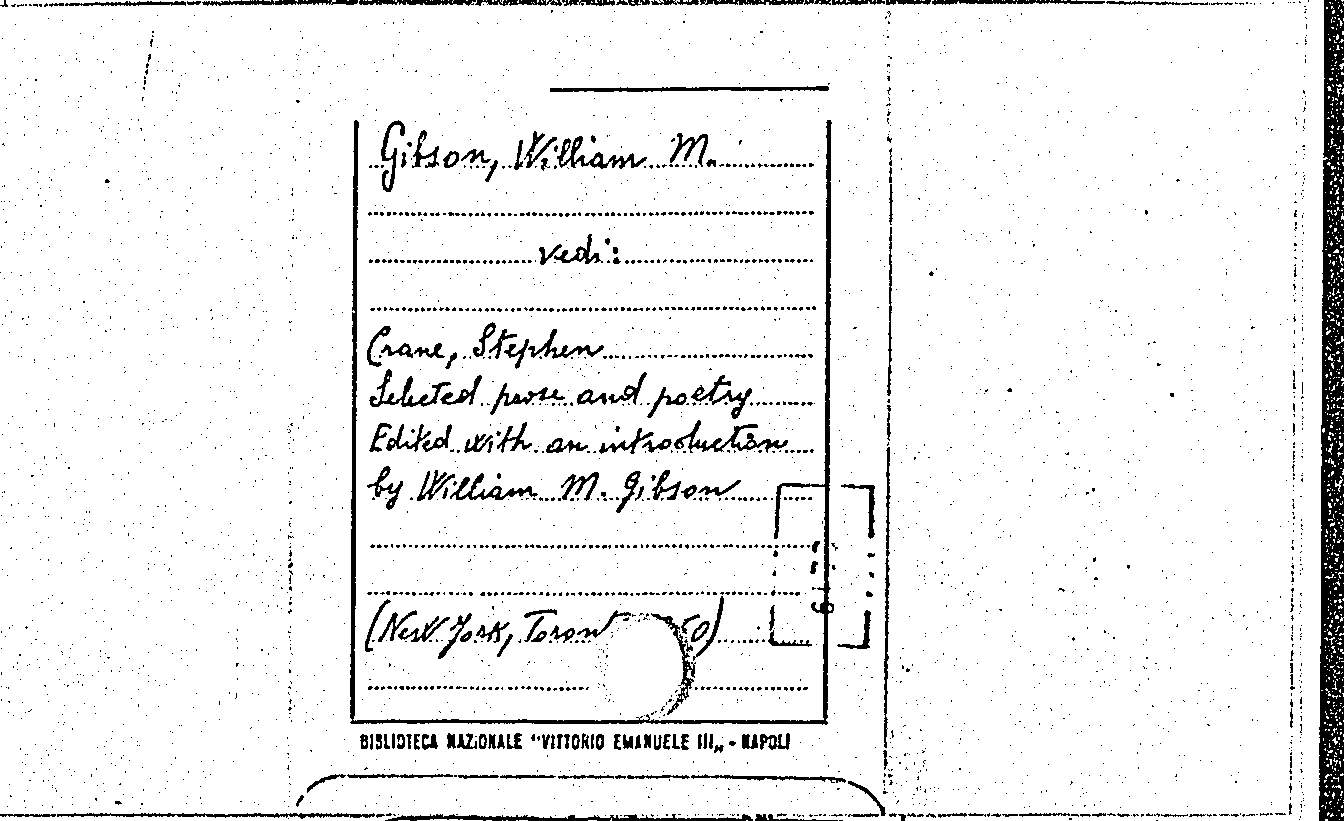 Gibson, William M.
vedi:
Crane, Stephen
Selected prose and poetry
Edited with an introduction
by William M. Gibson
(New York,
BIBLIOTECA NAZIONALE "VITTORIO EMANUELE III„ - NAPOLI